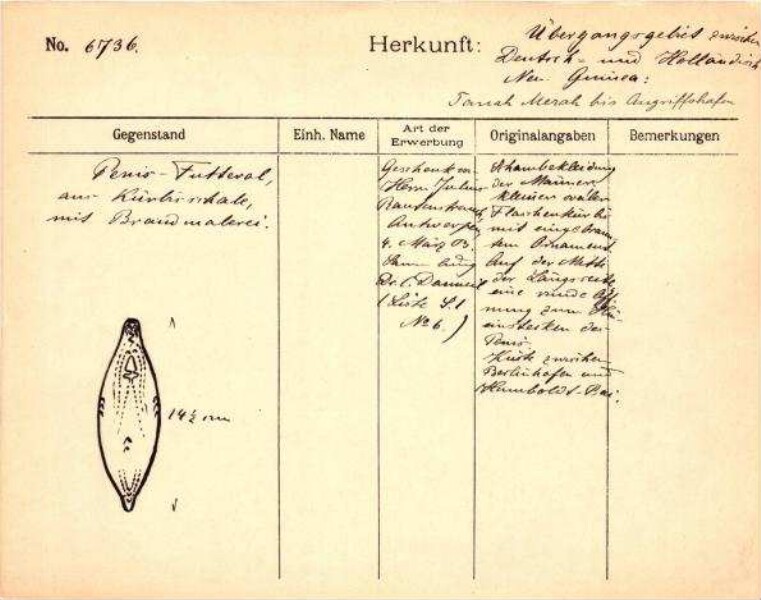 No. 6736.
Herkunft: Übergangsgebiet zwischen
Deutsch- und Holländisch
Neu Guinea:
Tanah Merah bis Angriffshafen
Gegenstand
Einh. Name
Art der Erwerbung
Originalangaben
Bemerkungen
Penis-Futteral,
aus Kürbisschale,
mit Brandmalerei.
14½ cm
Geschenk von
Herrn Julius
Rautenstrauch,
Antwerpen
4. März 03.
Sammlung
Dr. C. Dammeil
(Liste S. 1
No 6.)
Schambekleidung
der Männer
kleiner ovaler
Flaschenkürbis
mit eingebrann
tem Ornament.
Auf der Mitte
der Längsseite
eine runde Öff
nung zum Hin
einstecken des
Penis.
Küste zwischen
Berlinhafen und
Humboldt-Bai.